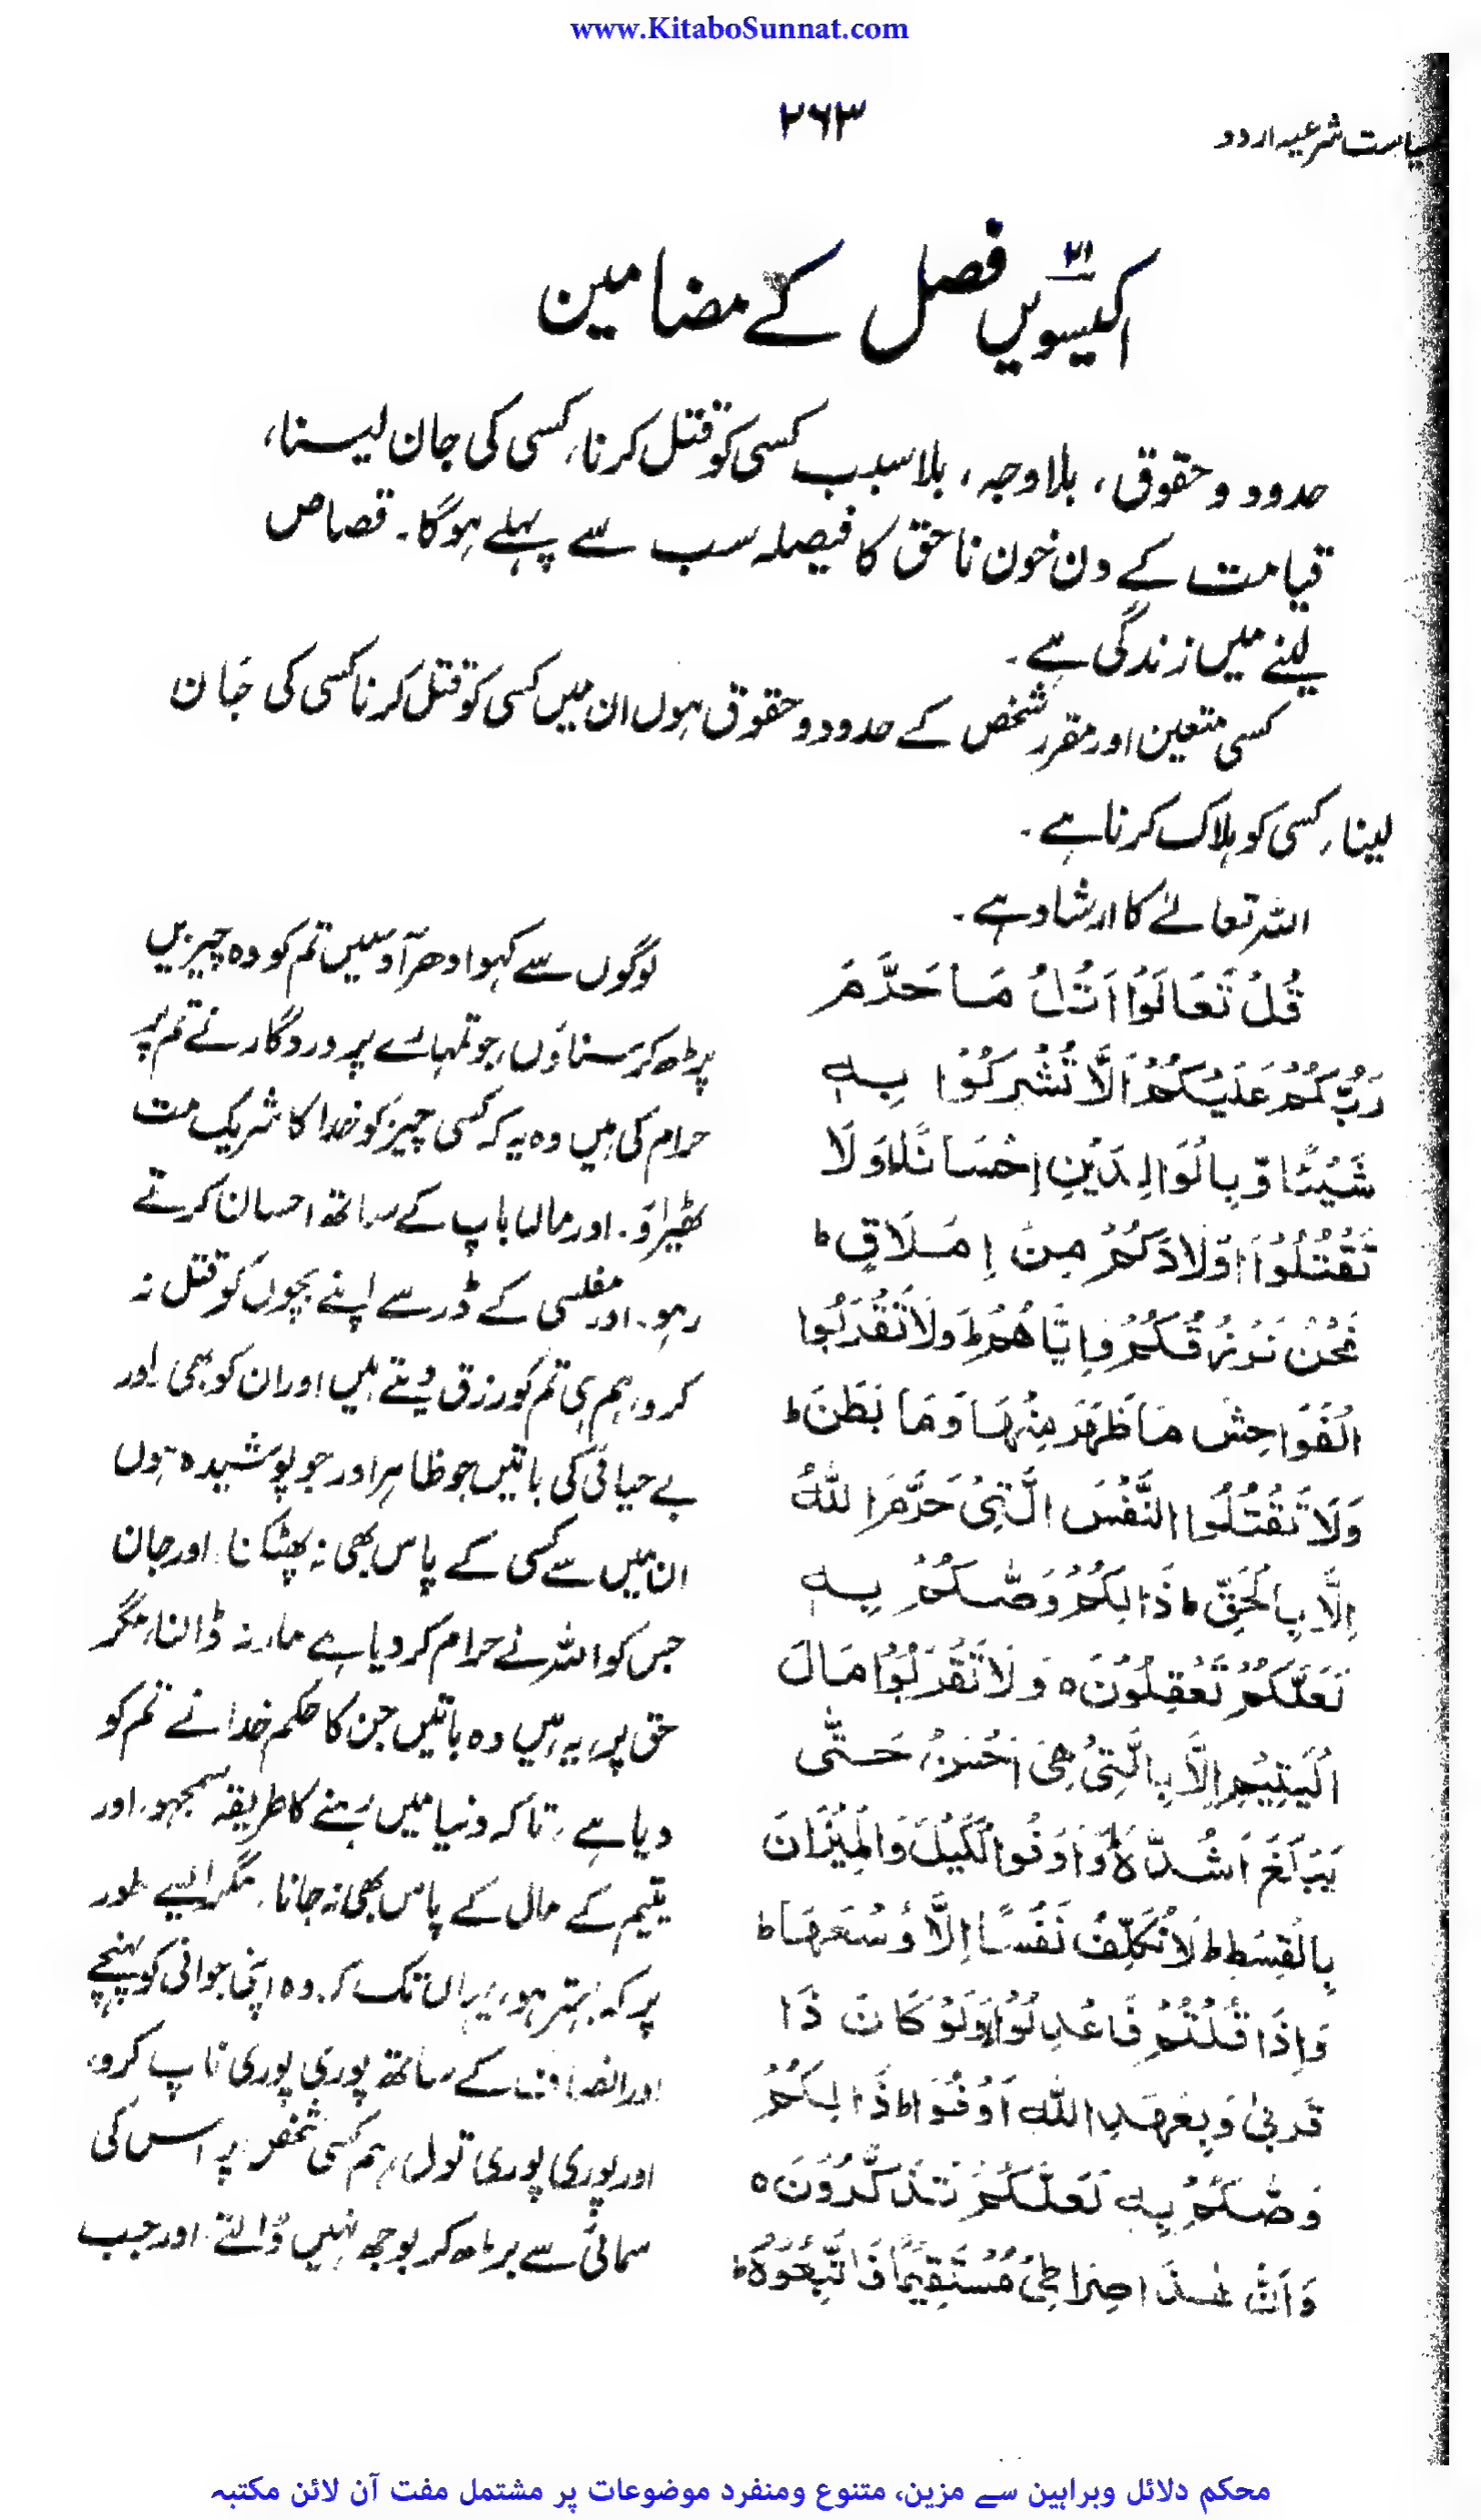 www.KitaboSunnat.com
سیاست شرعیہ اردو
۲۶۳
۲۱
اکیسویں فصل کے مضامین
حدود و حقوق، بلاوجہ، بلا سبب کسی کو قتل کرنا، کسی کی جان لینا،
قیامت کے دن خون ناحق کا فیصلہ سب سے پہلے ہوگا۔ قصاص
لینے میں زندگی ہے۔
کسی متعین اور مقرر شخص کے حدود و حقوق ہوں ان میں کسی کو قتل کرنا کسی کی جان
لینا، کسی کو ہلاک کرنا ہے۔
اللہ تعالےٰ کا ارشاد ہے۔
قُلْ تَعَالَوْا اَتْلُ مَا حَرَّمَ
رَبُّكُمْ عَلَيْكُمْ اَلَّا تُشْرِكُوْا بِهٖ
شَيْئًا وَّبِالْوَالِدَيْنِ اِحْسَانًا وَلَا
تَقْتُلُوْا اَوْلَادَكُمْ مِنْ اِمْلَاقٍ ط
نَحْنُ نَرْزُقُكُمْ وَاِيَّاهُمْ ط وَلَا تَقْرَبُوا
الْفَوَاحِشَ مَا ظَهَرَ مِنْهَا وَمَا بَطَنَ ط
وَلَا تَقْتُلُوا النَّفْسَ الَّتِيْ حَرَّمَ اللّٰهُ
اِلَّا بِالْحَقِّ ط ذَالِكُمْ وَصّٰكُمْ بِهٖ
لَعَلَّكُمْ تَعْقِلُوْنَ ہ وَلَا تَقْرَبُوْا مَالَ
الْيَتِيْمِ اِلَّا بِالَّتِيْ هِيَ اَحْسَنُ حَتّٰى
يَبْلُغَ اَشُدَّهٗ ط وَاَوْفُوا لْكَيْلَ وَالْمِيْزَانَ
بِالْقِسْطِ ط لَا نُكَلِّفُ نَفْسًا اِلَّا وُسْعَهَا ط
وَاِذَا قُلْتُمْ فَاعْدِلُوْا وَلَوْ كَانَ ذَا
قُرْبٰى وَبِعَهْدِ اللّٰهِ اَوْفُوْا ط ذَالِكُمْ
وَصّٰكُمْ بِهٖ لَعَلَّكُمْ تَذَكَّرُوْنَ ہ
وَاَنَّ هٰذَا صِرَاطِيْ مُسْتَقِيْمًا فَاتَّبِعُوْهُ ط
لوگوں سے کہو ادھر آؤ میں تم کو وہ چیزیں
پڑھ کر سناؤں، جو تمہارے پروردگار نے تم پر
حرام کی ہیں وہ یہ کہ کسی چیز کو خدا کا شریک مت
ٹھیراؤ۔ اور ماں باپ کے ساتھ احسان کرتے
رہو۔ اور مفلسی کے ڈر سے اپنے بچوں کو قتل نہ
کرو، ہم ہی تم کو رزق دیتے ہیں اور ان کو بھی اور
بے حیائی کی باتیں جو ظاہر اور جو پوشیدہ ہوں
ان میں سے کسی کے پاس بھی نہ پھٹکنا، اور جان
جس کو اللہ نے حرام کر دیا ہے مار نہ ڈالنا، مگر
حق پر، یہ ہیں وہ باتیں جن کا حکم خدا نے تم کو
دیا ہے، تاکہ دنیا میں رہنے کا طریقہ سمجھو، اور
یتیم کے مال کے پاس بھی نہ جانا، مگر ایسے طور
پر کہ بہتر ہو، یہاں تک کہ وہ اپنی جوانی کو پہنچے
اور انصاف کے ساتھ پوری پوری ناپ کرو،
اور پوری پوری تول، ہم کسی شخص پر اس کی
سمائی سے بڑھ کر بوجھ نہیں ڈالتے، اور جب
محکم دلائل وبراہین سے مزین، متنوع ومنفرد موضوعات پر مشتمل مفت آن لائن مکتبہ